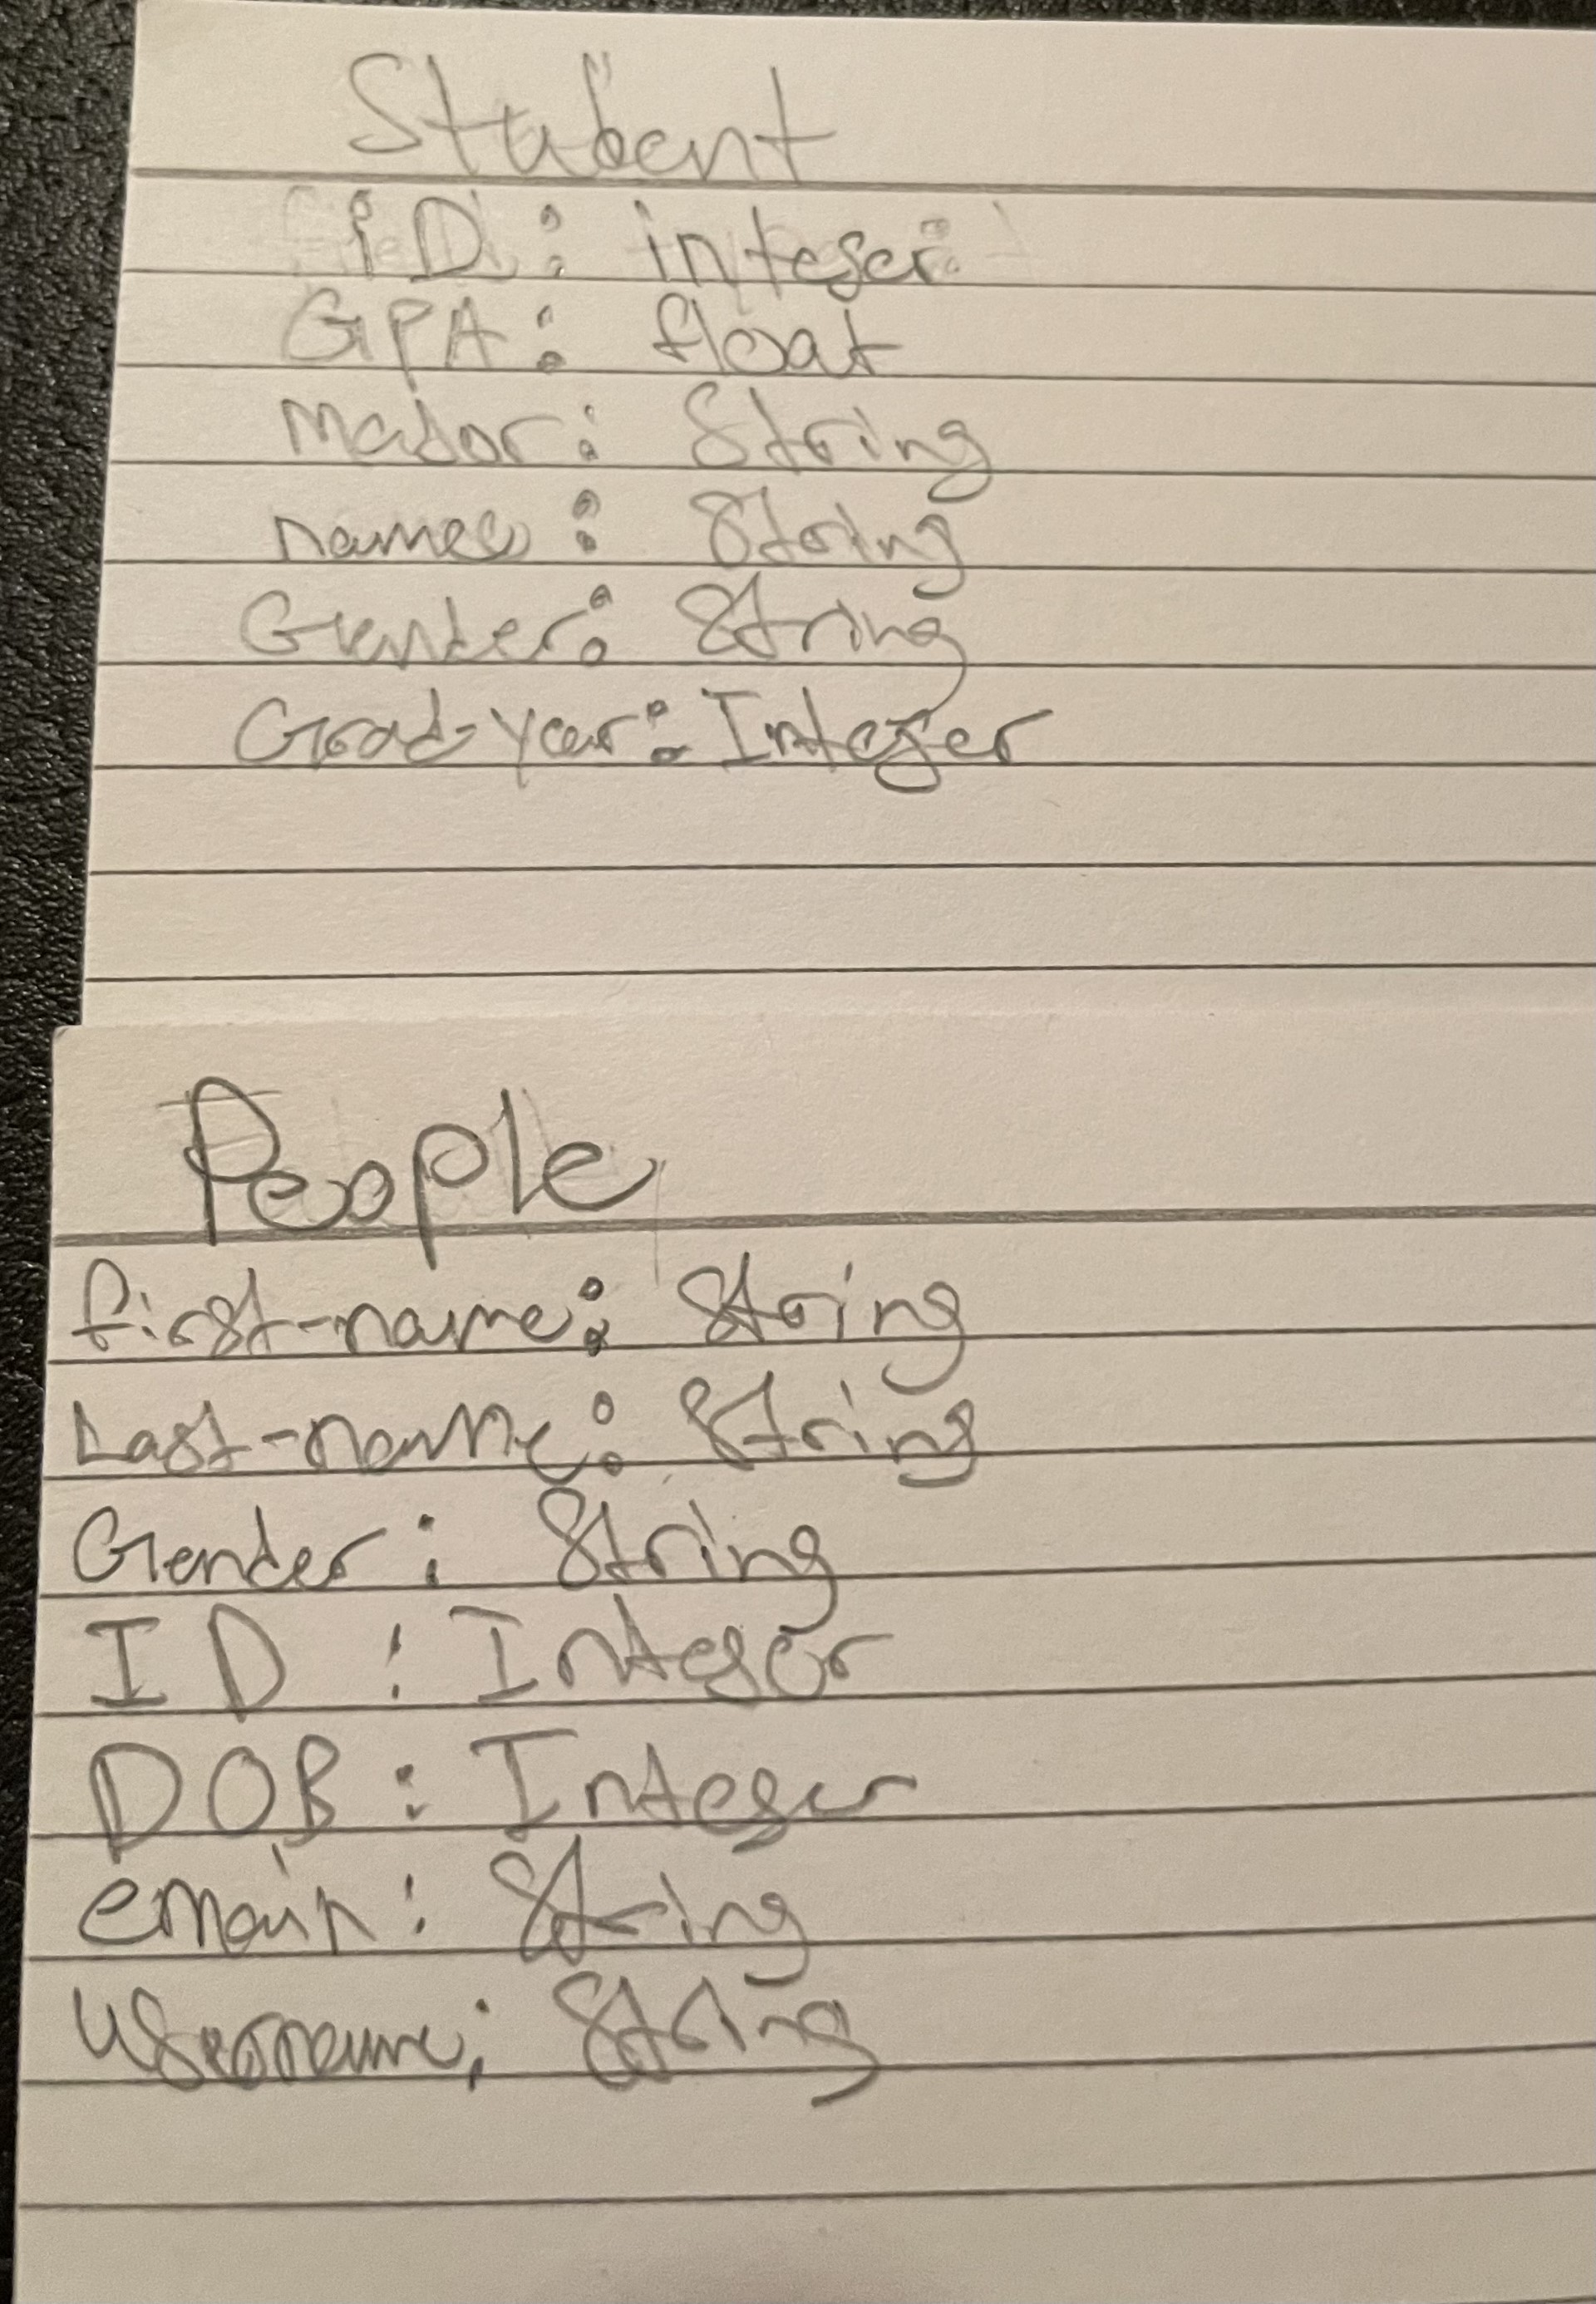 Student
iD: integer
GPA: float
Major: String
name: String
Gender: String
Grad-year: Integer
People
first-name: String
Last-name: String
Gender: String
ID : Integer
DOB: Integer
email: String
Username: String